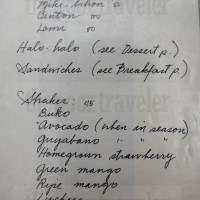 Miki-bihon
Canton
Lomi
Halo-halo (see Dessert p.)
Sandwiches (see Breakfast p.)
Shakes 45
Buko
Avocado (when in season)
Guyabano " " "
Homegrown strawberry
Green mango
Ripe mango